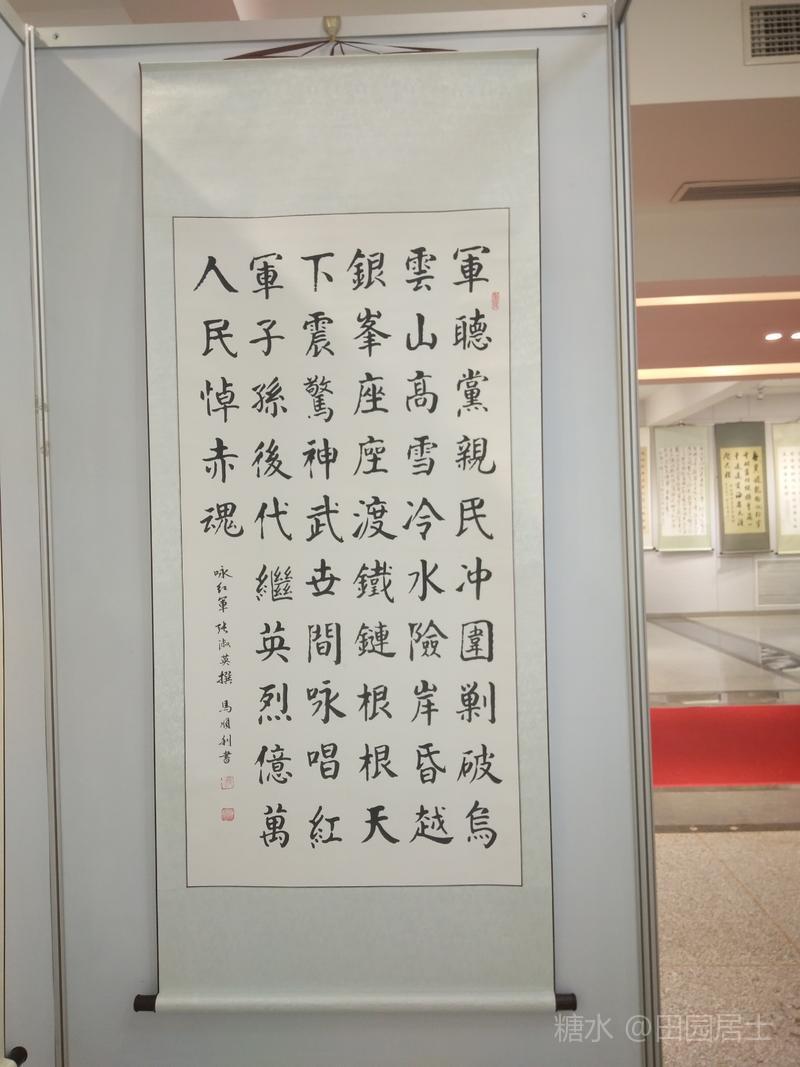 軍聽黨親民冲圍剿破烏
雲山高雪冷水險岸昏越
銀峯座座渡鐵鏈根根天
下震驚神武世間咏唱紅
軍子孫後代繼英烈億萬
人民悼赤魂
咏红軍 张淑英撰 馬順利書
糖水 @田园居士